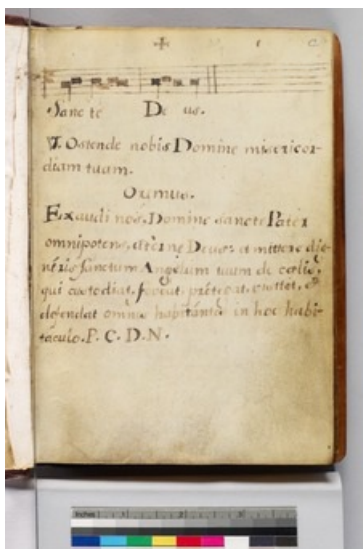 Sanc te De us.
℣. Ostende nobis Domine misericor-
diam tuam.
Oremus.
Exaudi nos, Domine sancte Pater
omnipotens, ætérne Deus: et mittere dig-
néris sanctum Angelum tuum de cælis,
qui custodiat, foveat, prótegat, visitet, &
defendat omnes habitántes in hoc habi-
táculo. P. C. D. N.
Inches